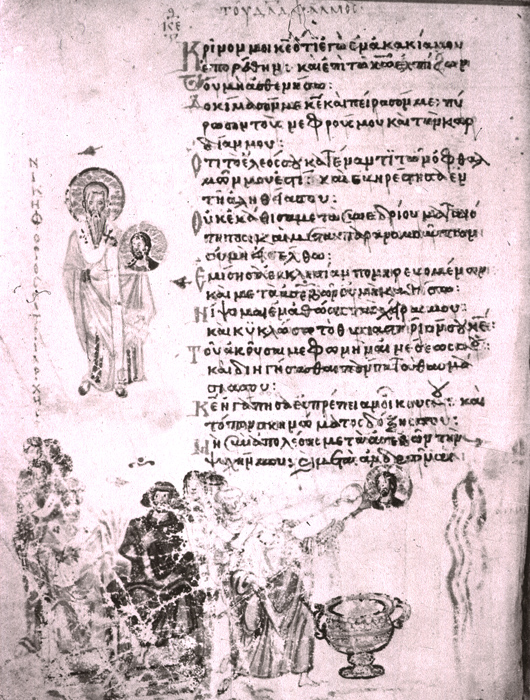 ΤΟΥ ΔΑΔ ΨΑΛΜΟΣ
ΚΕ
Κρῖνόν μοι κε ὅτι ἐγὼ ἐν ἀκακία μου
ἐπορεύθην· καὶ ἐπὶ τῶ κω ἐλπίζων
οὐ μὴ ἀσθενήσω:
Δοκίμασόν με κε καὶ πείρασόν με· πύ
ρωσον τοὺς νεφρούς μου καὶ τὴν καρ
δίαν μου:
Ὅτι τὸ ἔλεός σου κατέναντι τῶν ὀφθαλ
μῶν μου ἐστί· καὶ εὐηρέστησα ἐν
τῆ ἀληθεία σου:
Οὐκ ἐκάθισα μετὰ συνεδρίου ματαιό
τητος· καὶ μετὰ παρανομούντων
οὐ μὴ εἰσέλθω:
Ἐμίσησα ἐκκλησίαν πονηρευομένων
καὶ μετὰ ἀσεβῶν οὐ μὴ καθίσω:
Νίψομαι ἐν ἀθώοις τὰς χεῖράς μου:
καὶ κυκλώσω τὸ θυσιαστήριόν σου κε:
Τοῦ ἀκοῦσαί με φωνὴν αἰνέσεώς σου:
καὶ διηγήσασθαι πάντα τὰ θαυμά
σιά σου:
Κε ἠγάπησα εὐπρέπειαν οἴκου σου: καὶ
τόπον σκηνώματος δόξης σου:
Μὴ συναπολέσης μετὰ ἀσεβῶν τὴν
ψυχήν μου: καὶ μετὰ ἀνδρῶν
ΝΙΚΗΦΟΡΟΣ